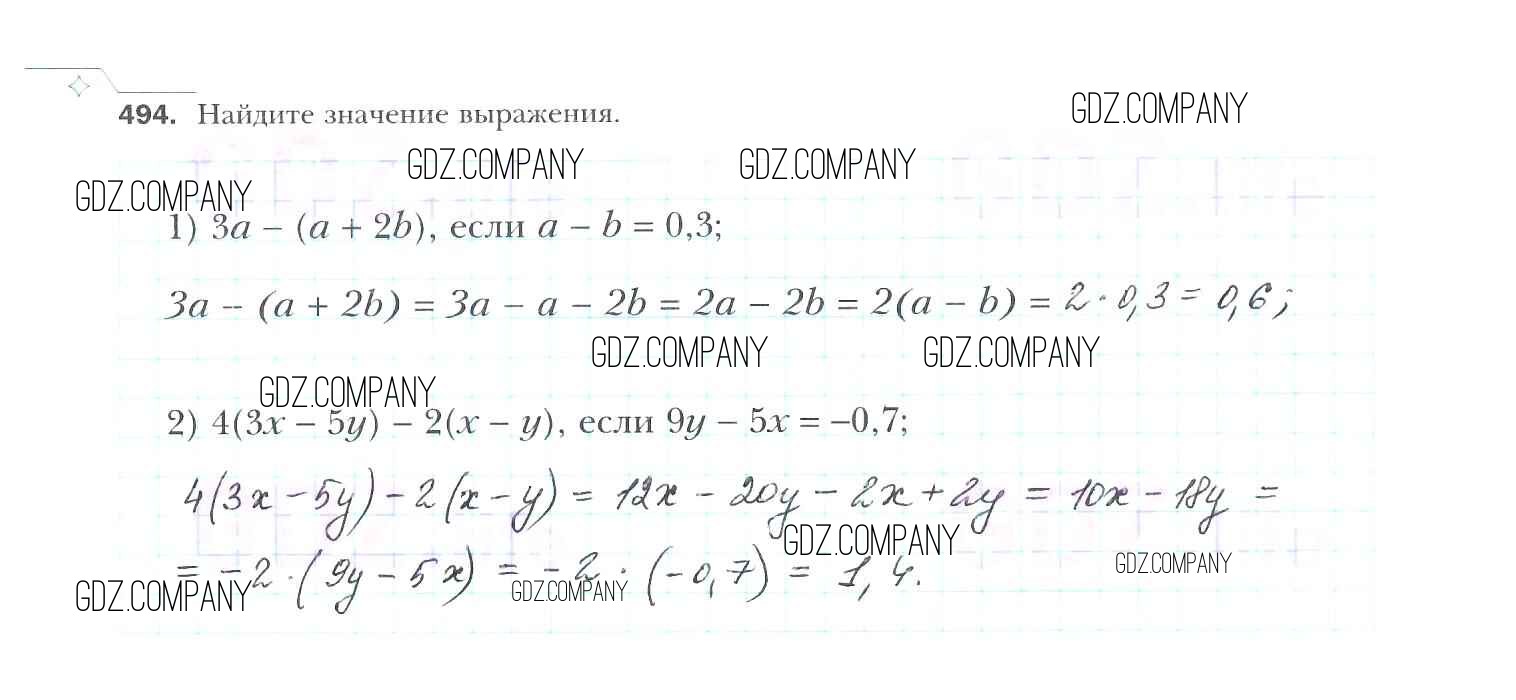 494. Найдите значение выражения.
GDZ.COMPANY
GDZ.COMPANY
GDZ.COMPANY
GDZ.COMPANY
1) 3a – (a + 2b), если a – b = 0,3;
3a – (a + 2b) = 3a – a – 2b = 2a – 2b = 2(a – b) = 2 · 0,3 = 0,6;
GDZ.COMPANY
GDZ.COMPANY
GDZ.COMPANY
2) 4(3x – 5y) – 2(x – y), если 9y – 5x = –0,7;
4(3x – 5y) – 2(x – y) = 12x – 20y – 2x + 2y = 10x – 18y =
GDZ.COMPANY
GDZ.COMPANY
= –2 · (9y – 5x) = –2 · (–0,7) = 1,4.
GDZ.COMPANY
GDZ.COMPANY